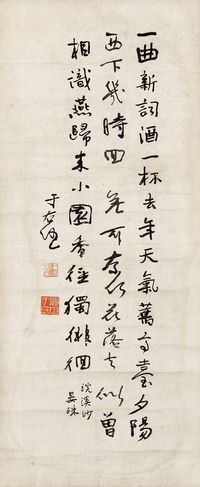 一曲新詞酒一杯去年天氣舊亭臺夕陽
西下幾時回無可奈何花落去似曾
相識燕歸来小園香徑獨徘徊
浣溪沙
晏殊
于右任